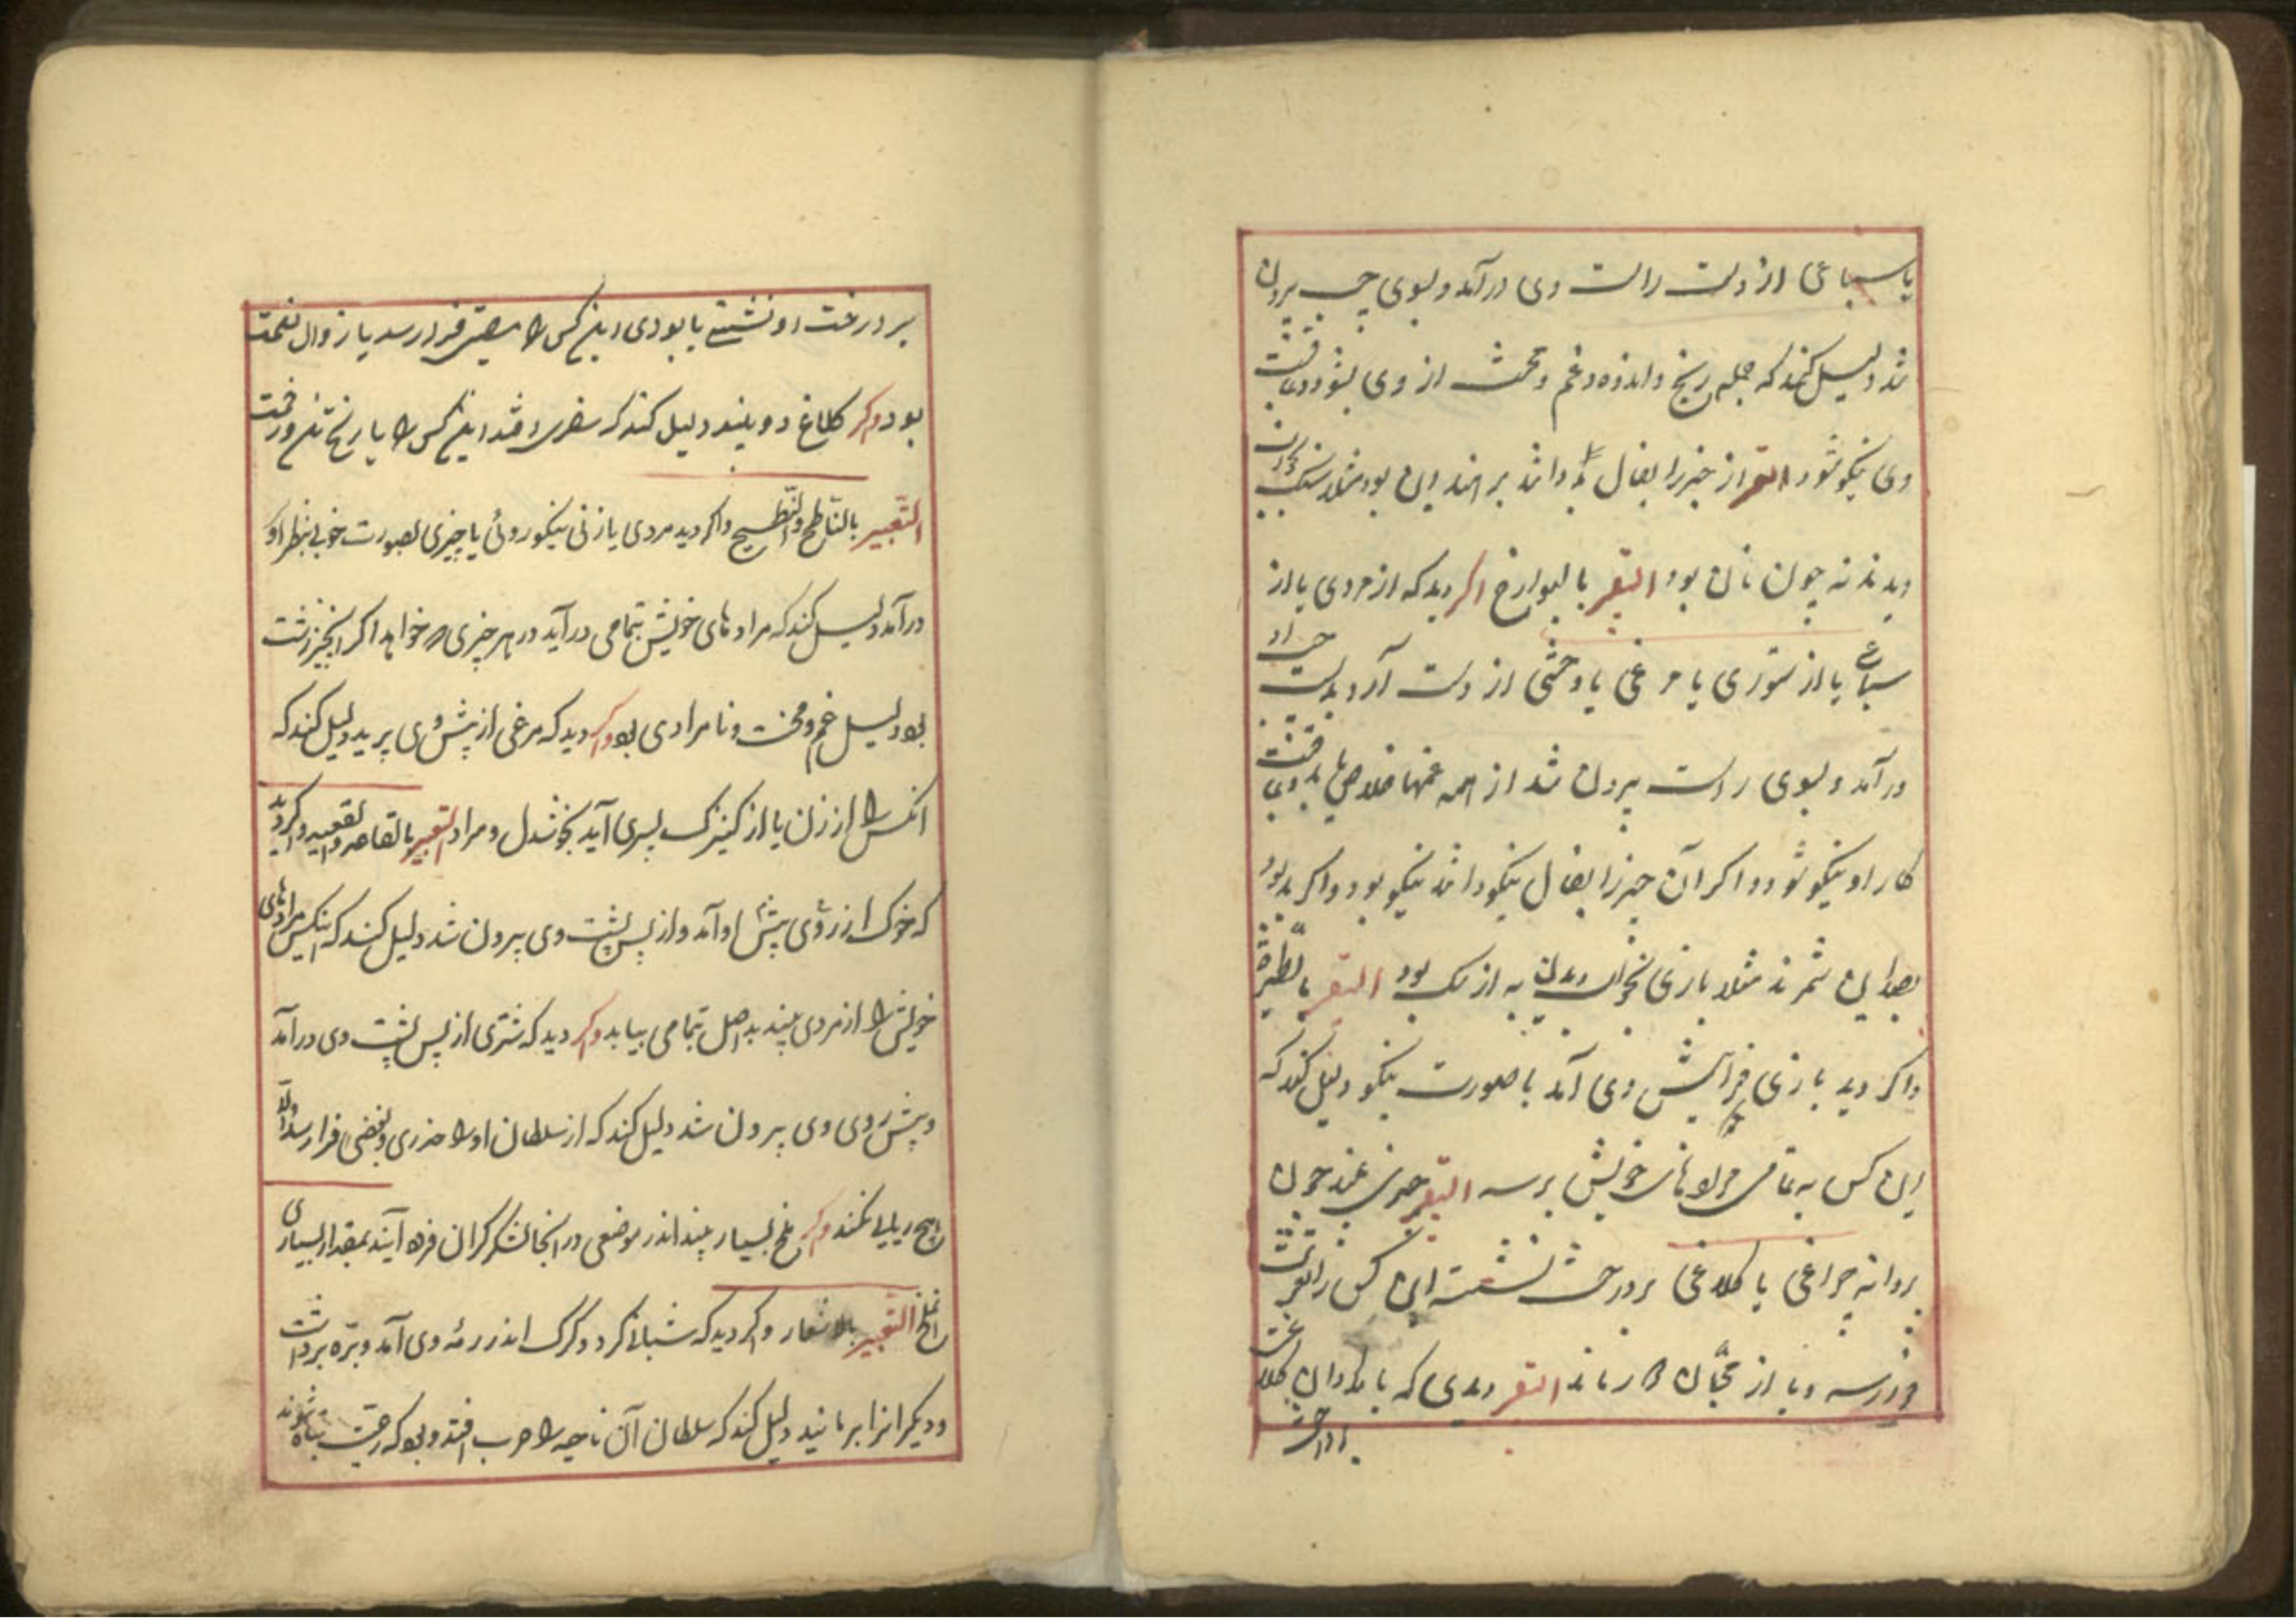 یا سباعی از دست راست وی درآمد و بسوی چپ بیرون
شد دلیل کند که جمله رنج و اندوه و غم و محنت از وی بشود و عاقبت
وی نیکو شود التعبیر از خیر را بفال بد دانند بر انند این بود مثلا سنک
دیدند نه چون نان بود التعبیر بالبوارخ اکر دید که از مردی یا از
سباعی یا از ستوری یا مرغی یا وحشی از دست آرد بدست
درآمد و بسوی راست بیرون شد از همه غمها خلاص یابد و عاقبت
کار او نیکو شود و اکر آن چیز را بفال نیکو دانند نیکو بود و اکر بد بود
شمرند مثلا بازی به از بود التعبیر
واکر دید بازی فرا پیش وی آمد با صورت نیکو دلیل کند که
این کس به تمامی مرادهای خویش برسد التعبیر چون
پروانه چراغی یا کلاغی بر درخت نشسته این کس را
در رسد و یا از التعبیر دیدی که بامدادان کلاغ
بر درخت
بر درخت او نشستی یا بودی این کس را مصیبتی فرا رسد یا زوال نعمت
بود وکر کلاغ دو بیند دلیل کند که سفری افتد این کس را یا رنج تن و رفت
التعبیر بالناطح والنطیح واکر دید مردی یا زنی نیکو روئی یا چیزی بصورت خوب بنظر او
درآمد دلیل کند که مرادهای خویش بتمامی درآید در هر چیزی که خواهد اکر آنچیز زشت
بود دلیل غم و محنت و نامرادی بود وکر دید که مرغی از پیش وی پرید دلیل کند که
آنکس را از زن یا از کنیزک پسری آید بخوشدل و مراد التعبیر بالقاصر والقعید واکر دید
که خوک از روی پیش او آمد و از پس پشت وی بیرون شد دلیل کند که اینکس مرادهای
خویش را از مردی بیند بد اصل بتمامی بیابد وکر دید که شتری از پس پشت وی درآمد
و پیش روی وی بیرون شد دلیل کند که از سلطان او را ضرری و بغضی فرا رسد و اما
هیچ زیان نکند وکر ملخ بسیار بیند اندر موضعی در آنجا لشکر کران فرود آیند بمقدار بسیاری
آن ملخ التعبیر بالاشعار واکر دید که شبانی کرد و کرک اندر رمه وی آمد و بره برداشت
و دیکر انرا برمانید دلیل کند که سلطان آن ناحیه را حرب افتد و بود که رعیت تباه شوند